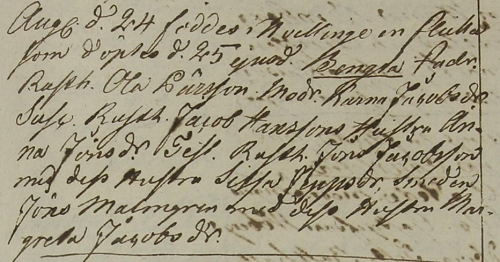 Aug. d. 24 föddes i Mellinge en flicka
som döptes d. 25 ejusd. Bengta Fadr.
Rusth. Ola Pärsson Modr. Karna Jacobsdr.
Susc. Rusth. Jacob Hanssons Hustru An-
na Jönsdr. Test. Rusth. Jöns Jacobsson
med dess Hustru Sissa Jeppsdr,
Jöns Malmgren med dess Hustru Mar-
greta Jacobsdr.